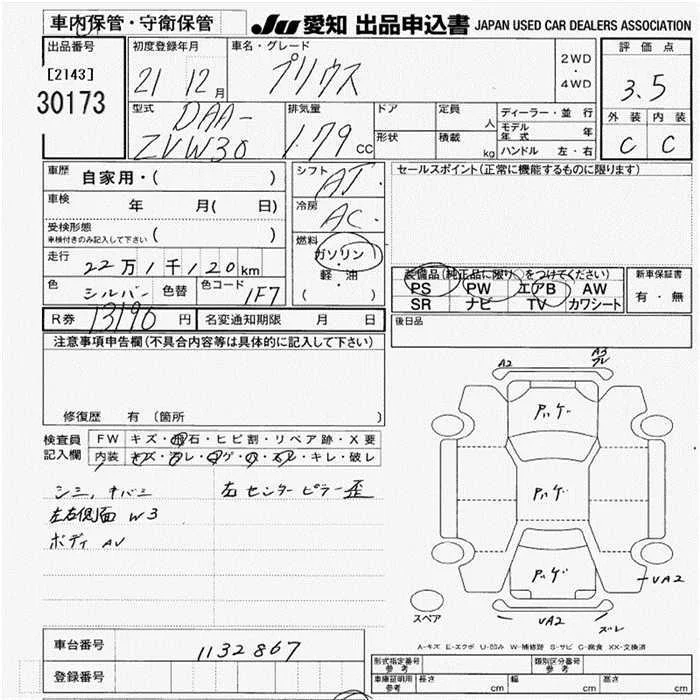 車内保管・守衛保管
JU 愛知 出品申込書 JAPAN USED CAR DEALERS ASSOCIATION
出品番号
[2143]
30173
初度登録年月
21 12月
車名・グレード
プリウス
2WD・4WD
評価点
3.5
外装 内装
C C
型式
DAA-
ZVW30
排気量
1.79cc
ドア
形状
定員
人
積載
kg
ディーラー・並行
モデル 年
ハンドル 左・右
車歴 自家用・( )
車検 年 月( 日)
受検形態
車検付きのみ記入して下さい ( )
走行
22万1千120km
色 シルバー 色替 色コード 1F7
R券 13190円 名変通知期限 月 日
シフト AT
冷房 AC
燃料
ガソリン
軽・油
( )
セールスポイント(正常に機能するものに限ります)
装備品(純正品に限り○をつけてください)
PS PW エアB AW
SR ナビ TV カワシート
新車保証書
有・無
後日品
注意事項申告欄(不具合内容等は具体的に記入して下さい)
修復歴 有(箇所 )
検査員
記入欄
FW キズ・飛石・ヒビ割・リペア跡・X要
内装 キズ・汚レ・コゲ・穴・スレ・キレ・破レ
シミ、キバミ
左右側面 W3
ボディ AV
左センターピラー歪
A2
A3
プレ
Pハゲ
Pハゲ
Pハゲ
UA2
UA2
ズレ
スペア
A-キズ E-エクボ U-凹み W-補修跡 S-サビ C-腐食 XX-交換済
車台番号 1132867
登録番号
形式指定番号
参考
類別区分番号
参考
車庫証明用
参考
長さ cm 幅 cm 高さ cm